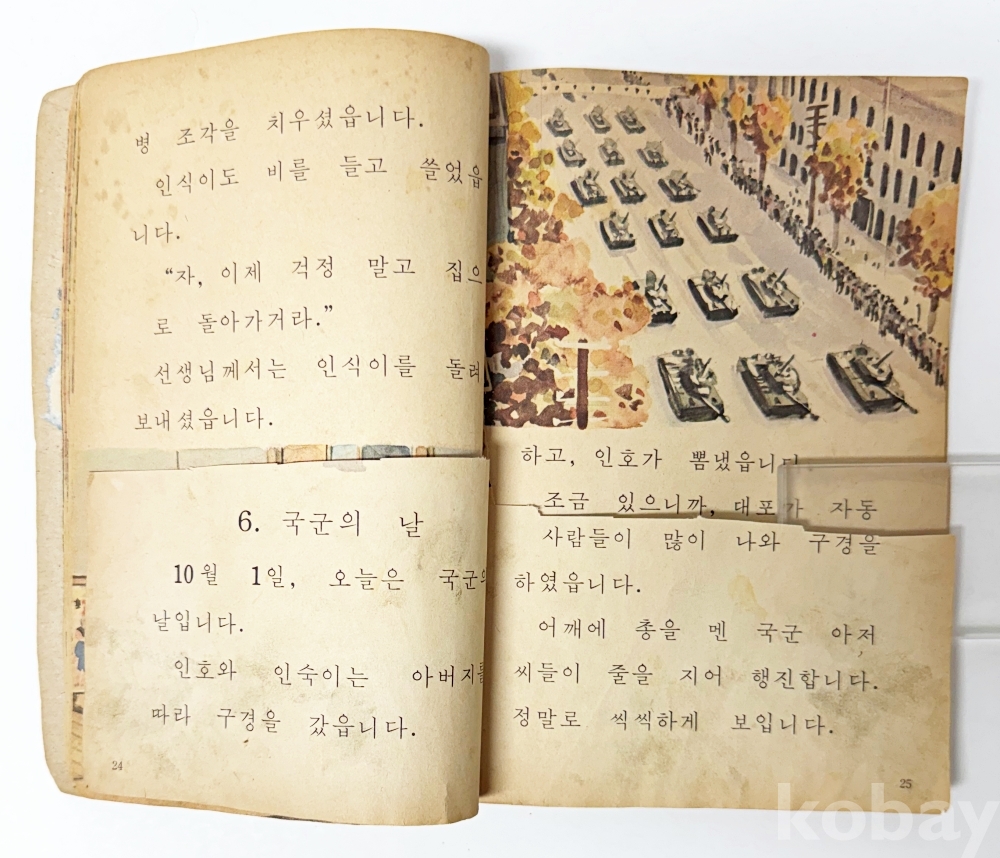 병 조각을 치우셨읍니다.
인식이도 비를 들고 쓸었읍
니다.
“자, 이제 걱정 말고 집으
로 돌아가거라.”
선생님께서는 인식이를 돌려
보내셨읍니다.
6. 국군의 날
10월 1일, 오늘은 국군의
날입니다.
인호와 인숙이는 아버지를
따라 구경을 갔읍니다.
24
하고, 인호가 뽐냈읍니다
조금 있으니까, 대포가 자동
사람들이 많이 나와 구경을
하였읍니다.
어깨에 총을 멘 국군 아저
씨들이 줄을 지어 행진합니다.
정말로 씩씩하게 보입니다.
25
kobay